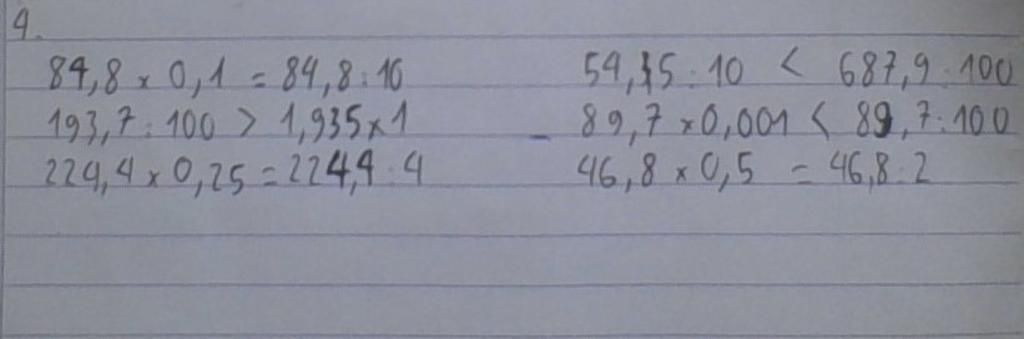 4.
84,8 x 0,1 = 84,8 : 10 54,15 : 10 < 687,9 : 100
193,7 : 100 > 1,935 x 1 89,7 x 0,001 < 89,7 : 100
224,4 x 0,25 = 224,4 : 4 46,8 x 0,5 = 46,8 : 2